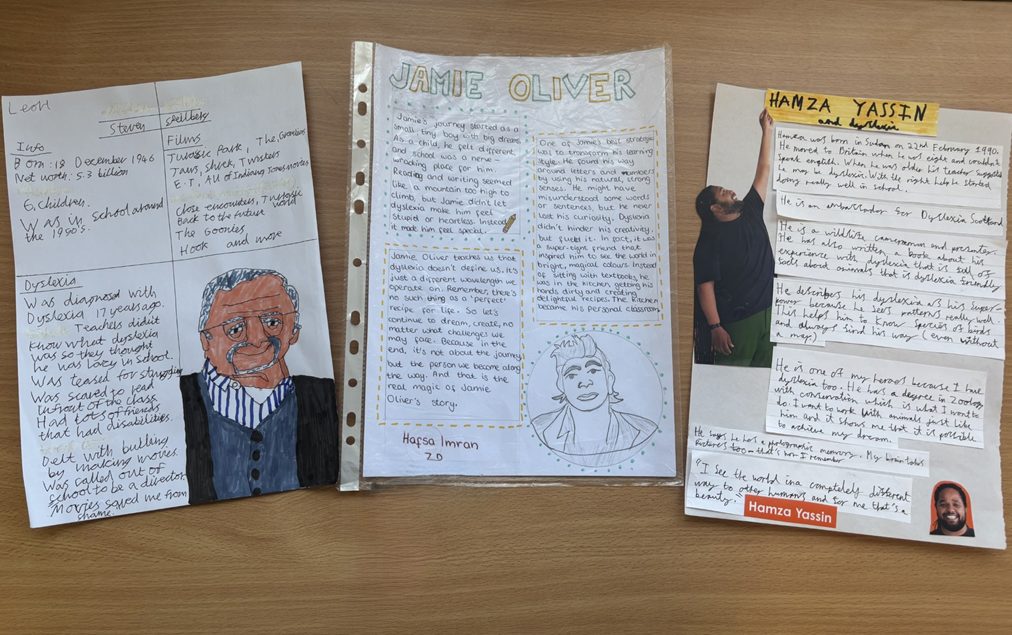 Leon
Steven Speilberg
Info
Born: 18 December 1946
Net worth: 5.3 billion
6 children.
Was in school around
the 1950's.
Films
Jurassic Park, The Goonies
Jaws, Shrek, Twisters
E.T, All of Indiana Jones movies
Close encounters, Jurassic World
Back to the future
The Goonies
Hook and more
Dyslexia
Was diagnosed with
Dyslexia 17 years ago.
Teachers didn't
Know what dyslexia
was so they thought
he was lazy in school.
Was teased for struggling
Was scared to read
infront of the class.
Had lots of friends
that had disabilities.
Delt with bulling
by making movies.
Was called out of
school to be a director.
Movies saved me from
shame.
JAMIE OLIVER
Jamie's journey started as a
small tiny boy with big dreams.
As a child, he felt different
and school was a nerve-
wracking place for him.
Reading and writing seemed
like a mountain too high to
climb, but Jamie didn't let
dyslexia make him feel
stupid or heartless. Instead
it made him feel special.
Jamie Oliver teaches us that
dyslexia doesn't define us, it's
just a different wavelength we
operate on. Remember, there's
no such thing as a 'perfect'
recipe for life. So let's
continue to dream, create, no
matter what challenges we
may face. Because in the
end, it's not about the journey
but the person we become along
the way. And that is the
real magic of Jamie
Oliver's story.
One of Jamie's best strategies
was to transform his learning
style. He found his way
around letters and numbers
by using his natural, strong
senses. He might have
misunderstood some words
or sentences, but he never
lost his curiosity. Dyslexia
didn't hinder his creativity,
but fueld it. In fact, it was
a super-tight friend that
inspired him to see the world in
bright, magical colours. Instead
of sitting with textbooks, he
was in the kitchen, getting his
hands dirty and creating
delightful recipes. The Kitchen
became his personal classroom.
Hafsa Imran
7D
HAMZA YASSIN
and dyslexia
Hamza was born in Sudan on 22nd February 1990.
He moved to Britain when he was eight and couldn't
speak english. When he was older his teacher suggested
he may be dyslexic. With the right help he started
doing really well in school.
He is an ambassador for Dyslexia Scotland
He is a wildlife cameraman and presenter.
He has also written a book about his
experience with dyslexia that is full of
facts about animals that is dyslexia friendly
He describes his dyslexia as his super-
power because he sees patterns really well.
This helps him to know species of birds
and always find his way (even without
a map)
He is one of my heroes because I have
dyslexia too. He has a degree in Zoology
with conservation which is what I want to
do. I want to work with animals just like
him and it shows me that it is possible
to achieve my dream.
He says he has a photographic memory. My brain takes
pictures too - that's how I remember
"I see the world in a completely different
way to other humans and for me that's a
beauty."
Hamza Yassin